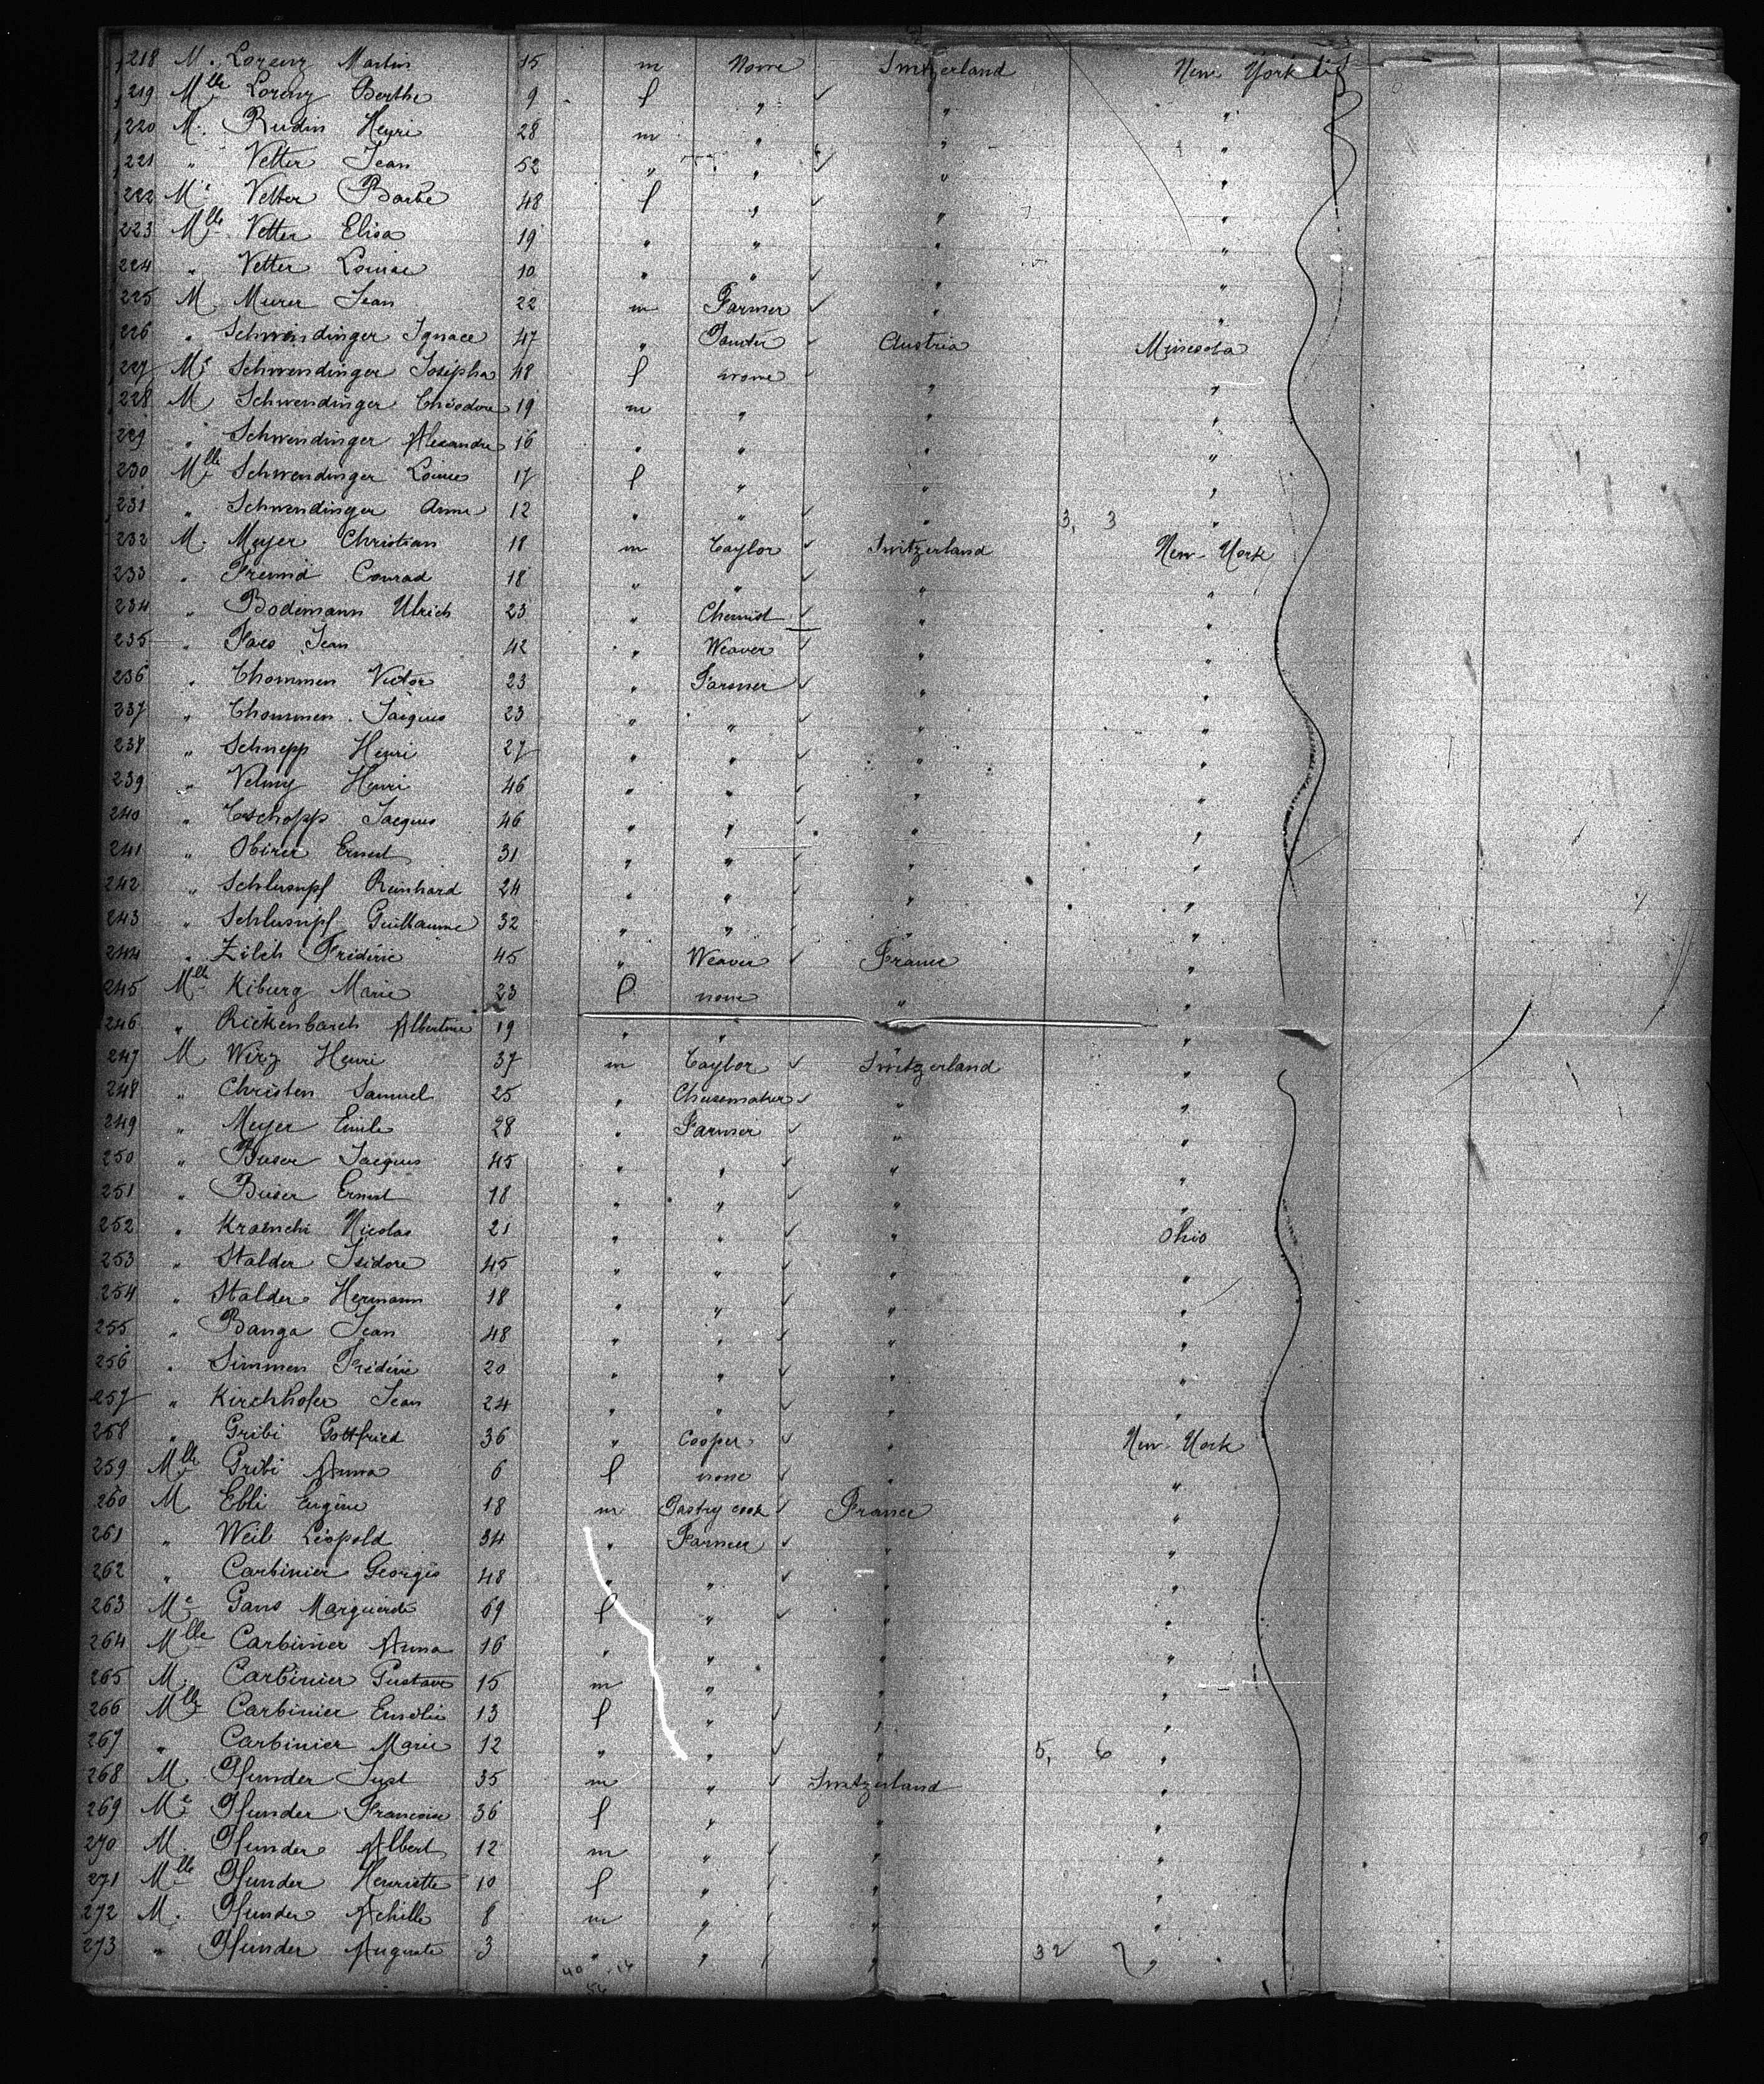 218 M. Lorenz Martin 15 m None Switzerland New York City
219 Mlle Lorenz Berthe 9 f " " "
220 M. Rudin Henri 28 m " " "
221 " Vetter Jean 52 " " " "
222 Me Vetter Barbe 48 f " " "
223 Mlle Vetter Elisa 19 " " " "
224 " Vetter Louise 10 " " " "
225 M. Murer Jean 22 m Farmer " "
226 " Schwendinger Ignace 47 " Austria Minesota
227 Me Schwendinger Josépha 48 f none " "
228 M Schwendinger Théodore 19 m " " "
229 " Schwendinger Alexandre 16 " " " "
230 Mlle Schwendinger Louise 17 f " " "
231 " Schwendinger Anna 12 " " " 3, 3 "
232 M. Meyer Christian 18 m Taylor Switzerland New-York
233 " Freund Conrad 18 " " " "
234 " Bodemann Ulrich 23 " Chemist " "
235 " Faes Jean 42 " Weaver " "
236 " Thommen Victor 23 " Farmer " "
237 " Thommen Jacques 23 " " " "
238 " Schnepp Henri 27 " " " "
239 " Henri 46 " " " "
240 " Tschopp Jacques 46 " " " "
241 " Obirer Ernest 31 " " " "
242 " Schlumpf Reinhard 24 " " " "
243 " Schlumpf Guillaume 32 " " " "
244 " Zilch Frédéric 45 " Weaver France "
245 Mlle Kiburg Marie 23 f none " "
246 " Rickenbach Albertine 19 " " " "
247 M Wirz Henri 37 m Taylor Switzerland "
248 " Christen Samuel 25 " Cheesemaker " "
249 " Meyer Emile 28 " Farmer " "
250 " Buser Jacques 45 " " " "
251 " Buser Ernest 18 " " " "
252 " Kraenchi Nicolas 21 " " " Ohio
253 " Stalder Isidore 45 " " " "
254 " Stalder Hermann 18 " " " "
255 " Banga Jean 48 " " " "
256 " Simmen Frédéric 20 " " " "
257 " Kirchhofer Jean 24 " " " "
258 " Gribi Gottfried 36 " Cooper " New-York
259 Mlle Gribi Anna 6 f none " "
260 M Ebli Eugène 18 m Pastry cook France "
261 " Weil Léopold 34 " Farmer " "
262 " Carbinier Georges 48 " " " "
263 Me Gans Marguerite 69 f " " "
264 Mlle Carbinier Anna 16 " " " "
265 M. Carbinier Gustave 15 m " " "
266 Mlle Carbinier Emélie 13 f " " "
267 " Carbinier Marie 12 " " " 5, 6 "
268 M. Pfunder Just 35 m " Switzerland "
269 Me Pfunder Francoise 36 f " " "
270 M. Pfunder Albert 12 m " " "
271 Mlle Pfunder Henriette 10 f " " "
272 M. Pfunder Achille 8 m " " "
273 " Pfunder Auguste 3 " " " 32 2 "
40 14